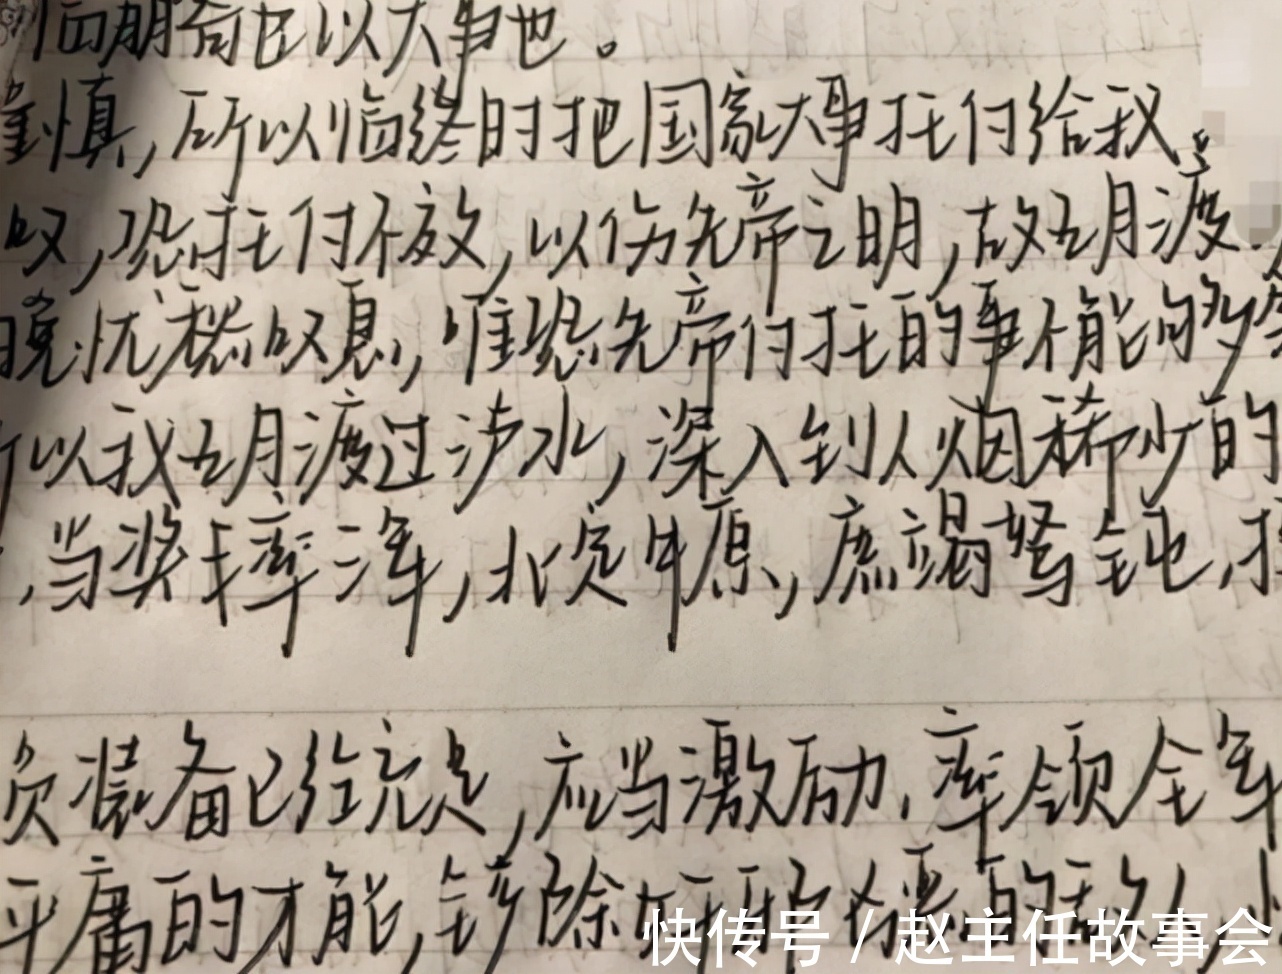 临崩寄臣以大事也。
谨慎,所以临终时把国家大事托付给我。
叹,恐托付不效,以伤先帝之明,故五月渡
晚忧愁叹息,唯恐先帝付托的事不能够
所以我五月渡过泸水,深入到人烟稀少的
,当奖率三军,北定中原,庶竭驽钝,
员装备已经充足,应当激励、率领全军
平庸的才能,铲除奸邪凶恶的敌人,
快传号 / 赵主任故事会